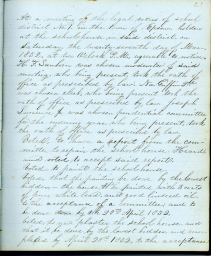 At a meeting of the legal voters of school
district No. 1 in the town of
at the schoolhouse in said district on
Saturday, the twenty seventh day of
1882, at two o'clock P.M. agreeable to notice,
H. F. Sanborn was chosen moderator of said
meeting, who being present, took the oath of
office as prescribed by law.
as chosen clerk, who being present took the
oath of office as prescribed by law. Joseph
was chosen prudential committee
for the ensuing year, who being present, took
the oath of office as prescribed by law.
Voted, to hear a report from the com-
mittee to repair the schoolhouse. Heard
and voted to accept said report.
Voted, to paint the schoolhouse.
Voted, that the painting be done by the lowest
bidder - the house to be painted with 2 coats
of white lead and good linseed oil
to the acceptance of a committee and to
be done by the 20th April 1882.
Voted, to the schoolhouse and
that it be done by the lowest bidder and com-
pleted by April 20th 1882, to the acceptance